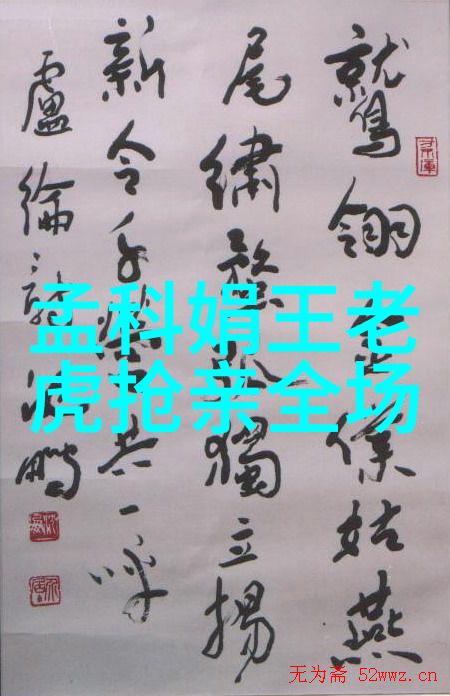 鷲翎金僕姑燕
尾繡蝥弧獨立揚
新令千營共一呼
盧綸詩沈鵬
孟科娟王老
虎抢亲全场
无为斋 52wwz.cn